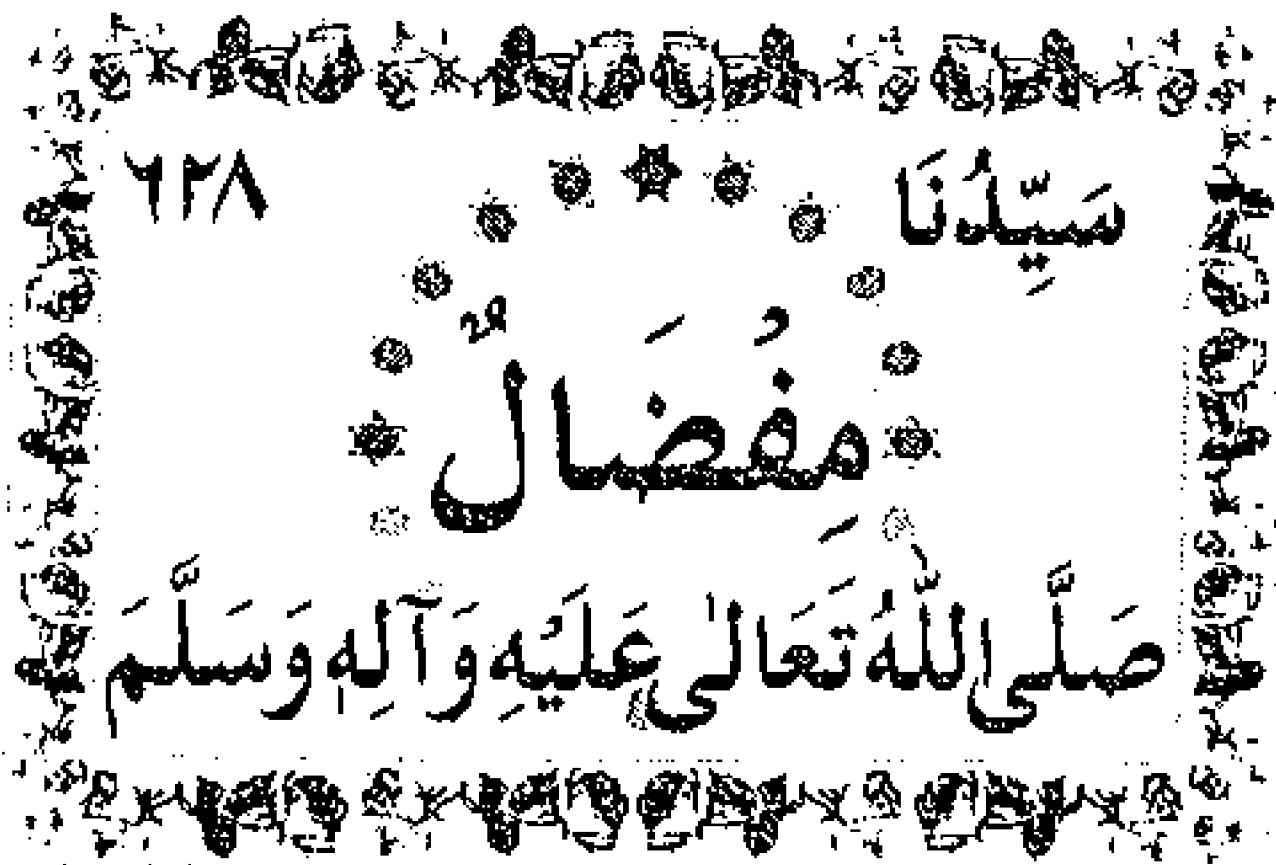 سَيِّدُنَا ٦٢٨
مِفْضَالٌ
صَلَّى اللّٰهُ تَعَالٰى عَلَيْهِ وَآلِهٖ وَسَلَّمَ